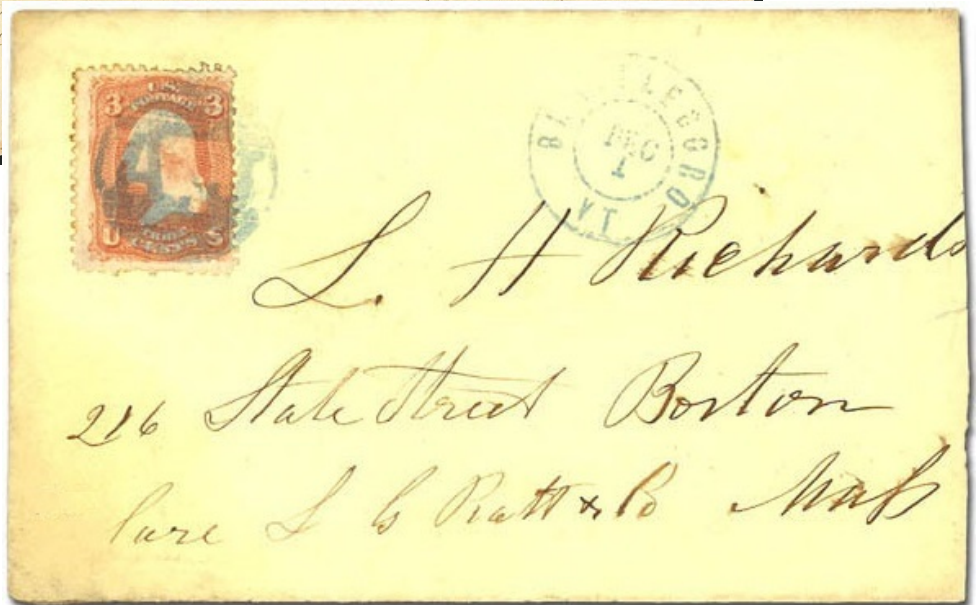 U.S.
POSTAGE
3 3
THREE
U CENTS S
BRATTLEBORO
DEC
1
VT.
L. H Richards
216 State Street Boston
Care L G Pratt & Co Mass